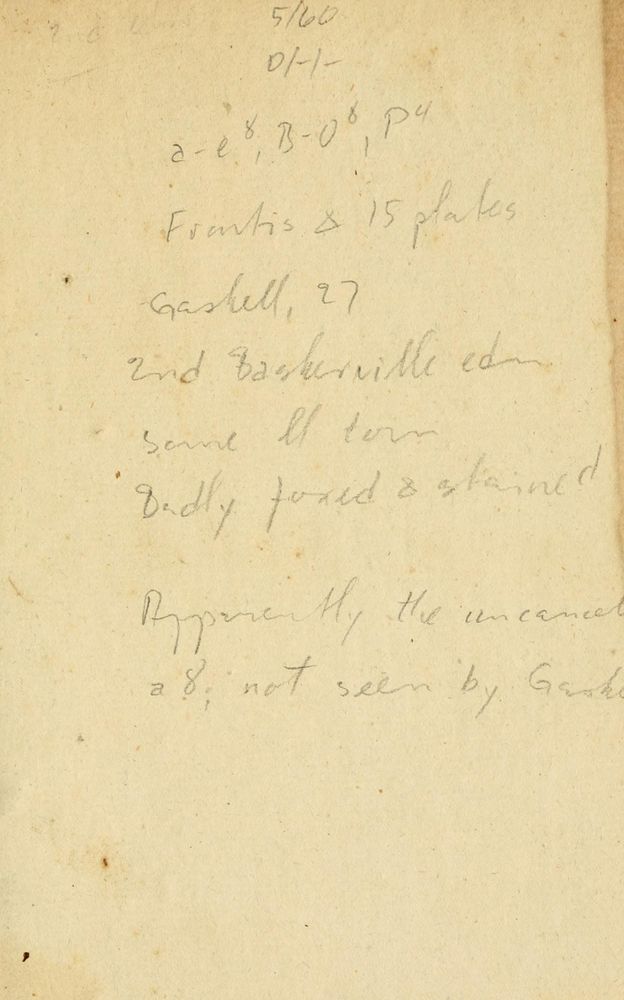 5/60
D/-/-
a-e⁸, B-O⁸, P⁴
Frontis & 15 plates
Gaskell, 27
2nd Baskerville edn
some ll torn
Badly foxed & stained
Apparently the uncancel
a8; not seen by Gaske